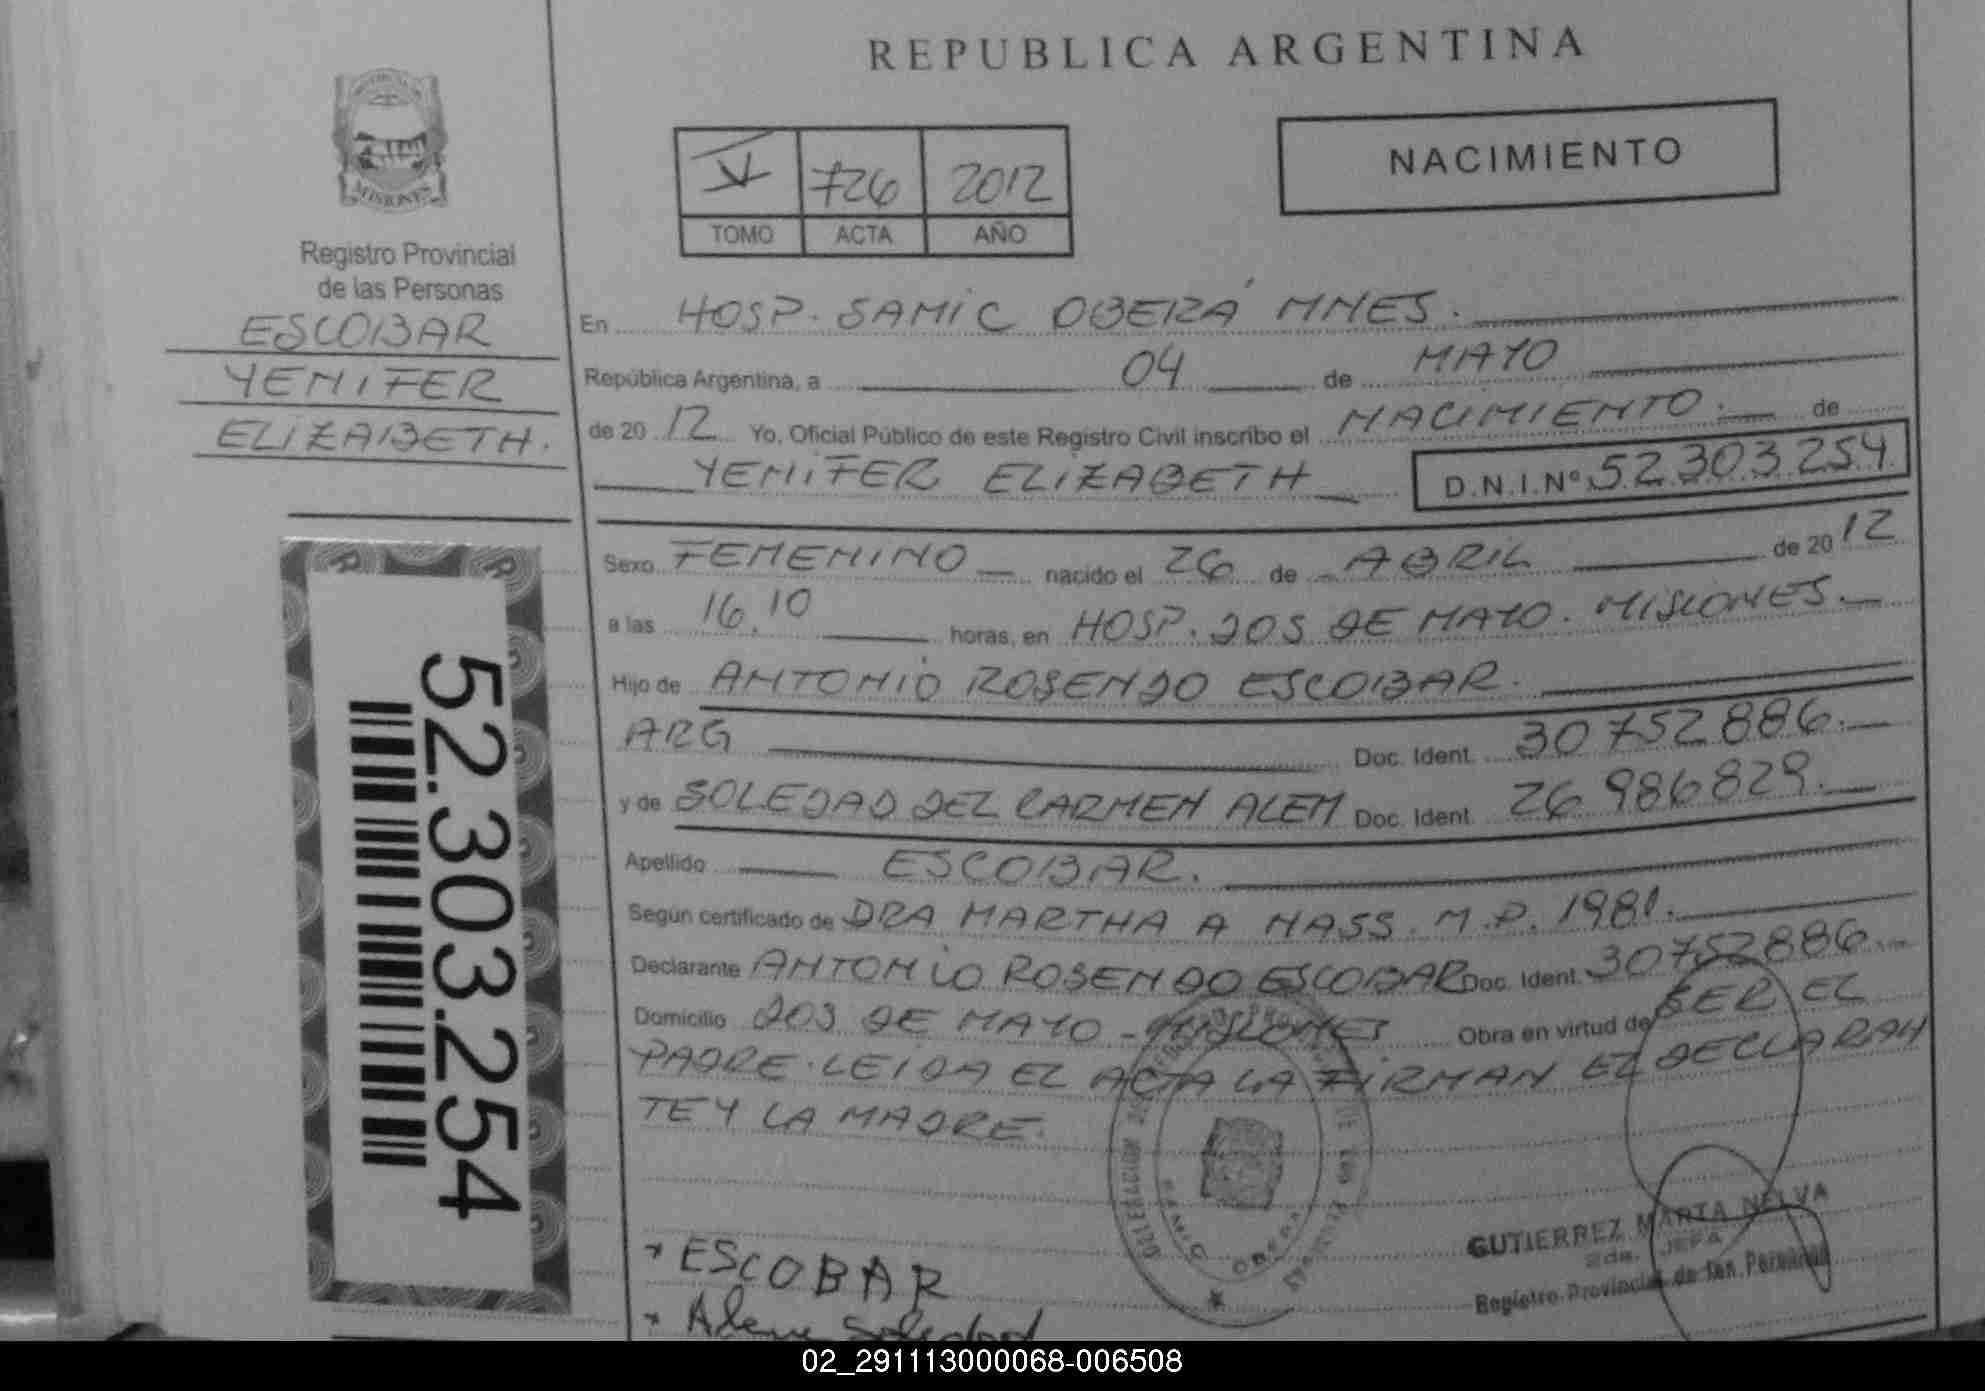 REPUBLICA ARGENTINA
MISIONES
Registro Provincial
de las Personas
ESCOBAR
YENIFER
ELIZABETH.
V 726 2012
TOMO ACTA AÑO
NACIMIENTO
En HOSP. SAMIC OBERÁ MNES.
República Argentina, a 04 de MAYO
de 20 12 Yo, Oficial Público de este Registro Civil inscribo el NACIMIENTO. de
YENIFER ELIZABETH D.N.I.Nº 52.303.254
Sexo FEMENINO nacido el 26 de ABRIL de 20 12
a las 16.10 horas, en HOSP. DOS DE MAYO. MISIONES.
Hijo de ANTONIO ROSENDO ESCOBAR.
ARG Doc. Ident. 30752886.
y de SOLEDAD DEL CARMEN ALEM Doc. Ident. 26986829.
Apellido ESCOBAR.
Según certificado de DRA MARTHA A HASS. M.P. 1981.
Declarante ANTONIO ROSENDO ESCOBAR Doc. Ident. 30752886.
Domicilio DOS DE MAYO - MISIONES Obra en virtud de SER EL
PADRE. LEIDA EL ACTA LA FIRMAN EL DECLARAN
TE Y LA MADRE.
52.303.254
ESCOBAR
Soledad
GUTIERREZ MARTA NELVA
JEFA
Registro Provincial de las Personas
02_291113000068-006508